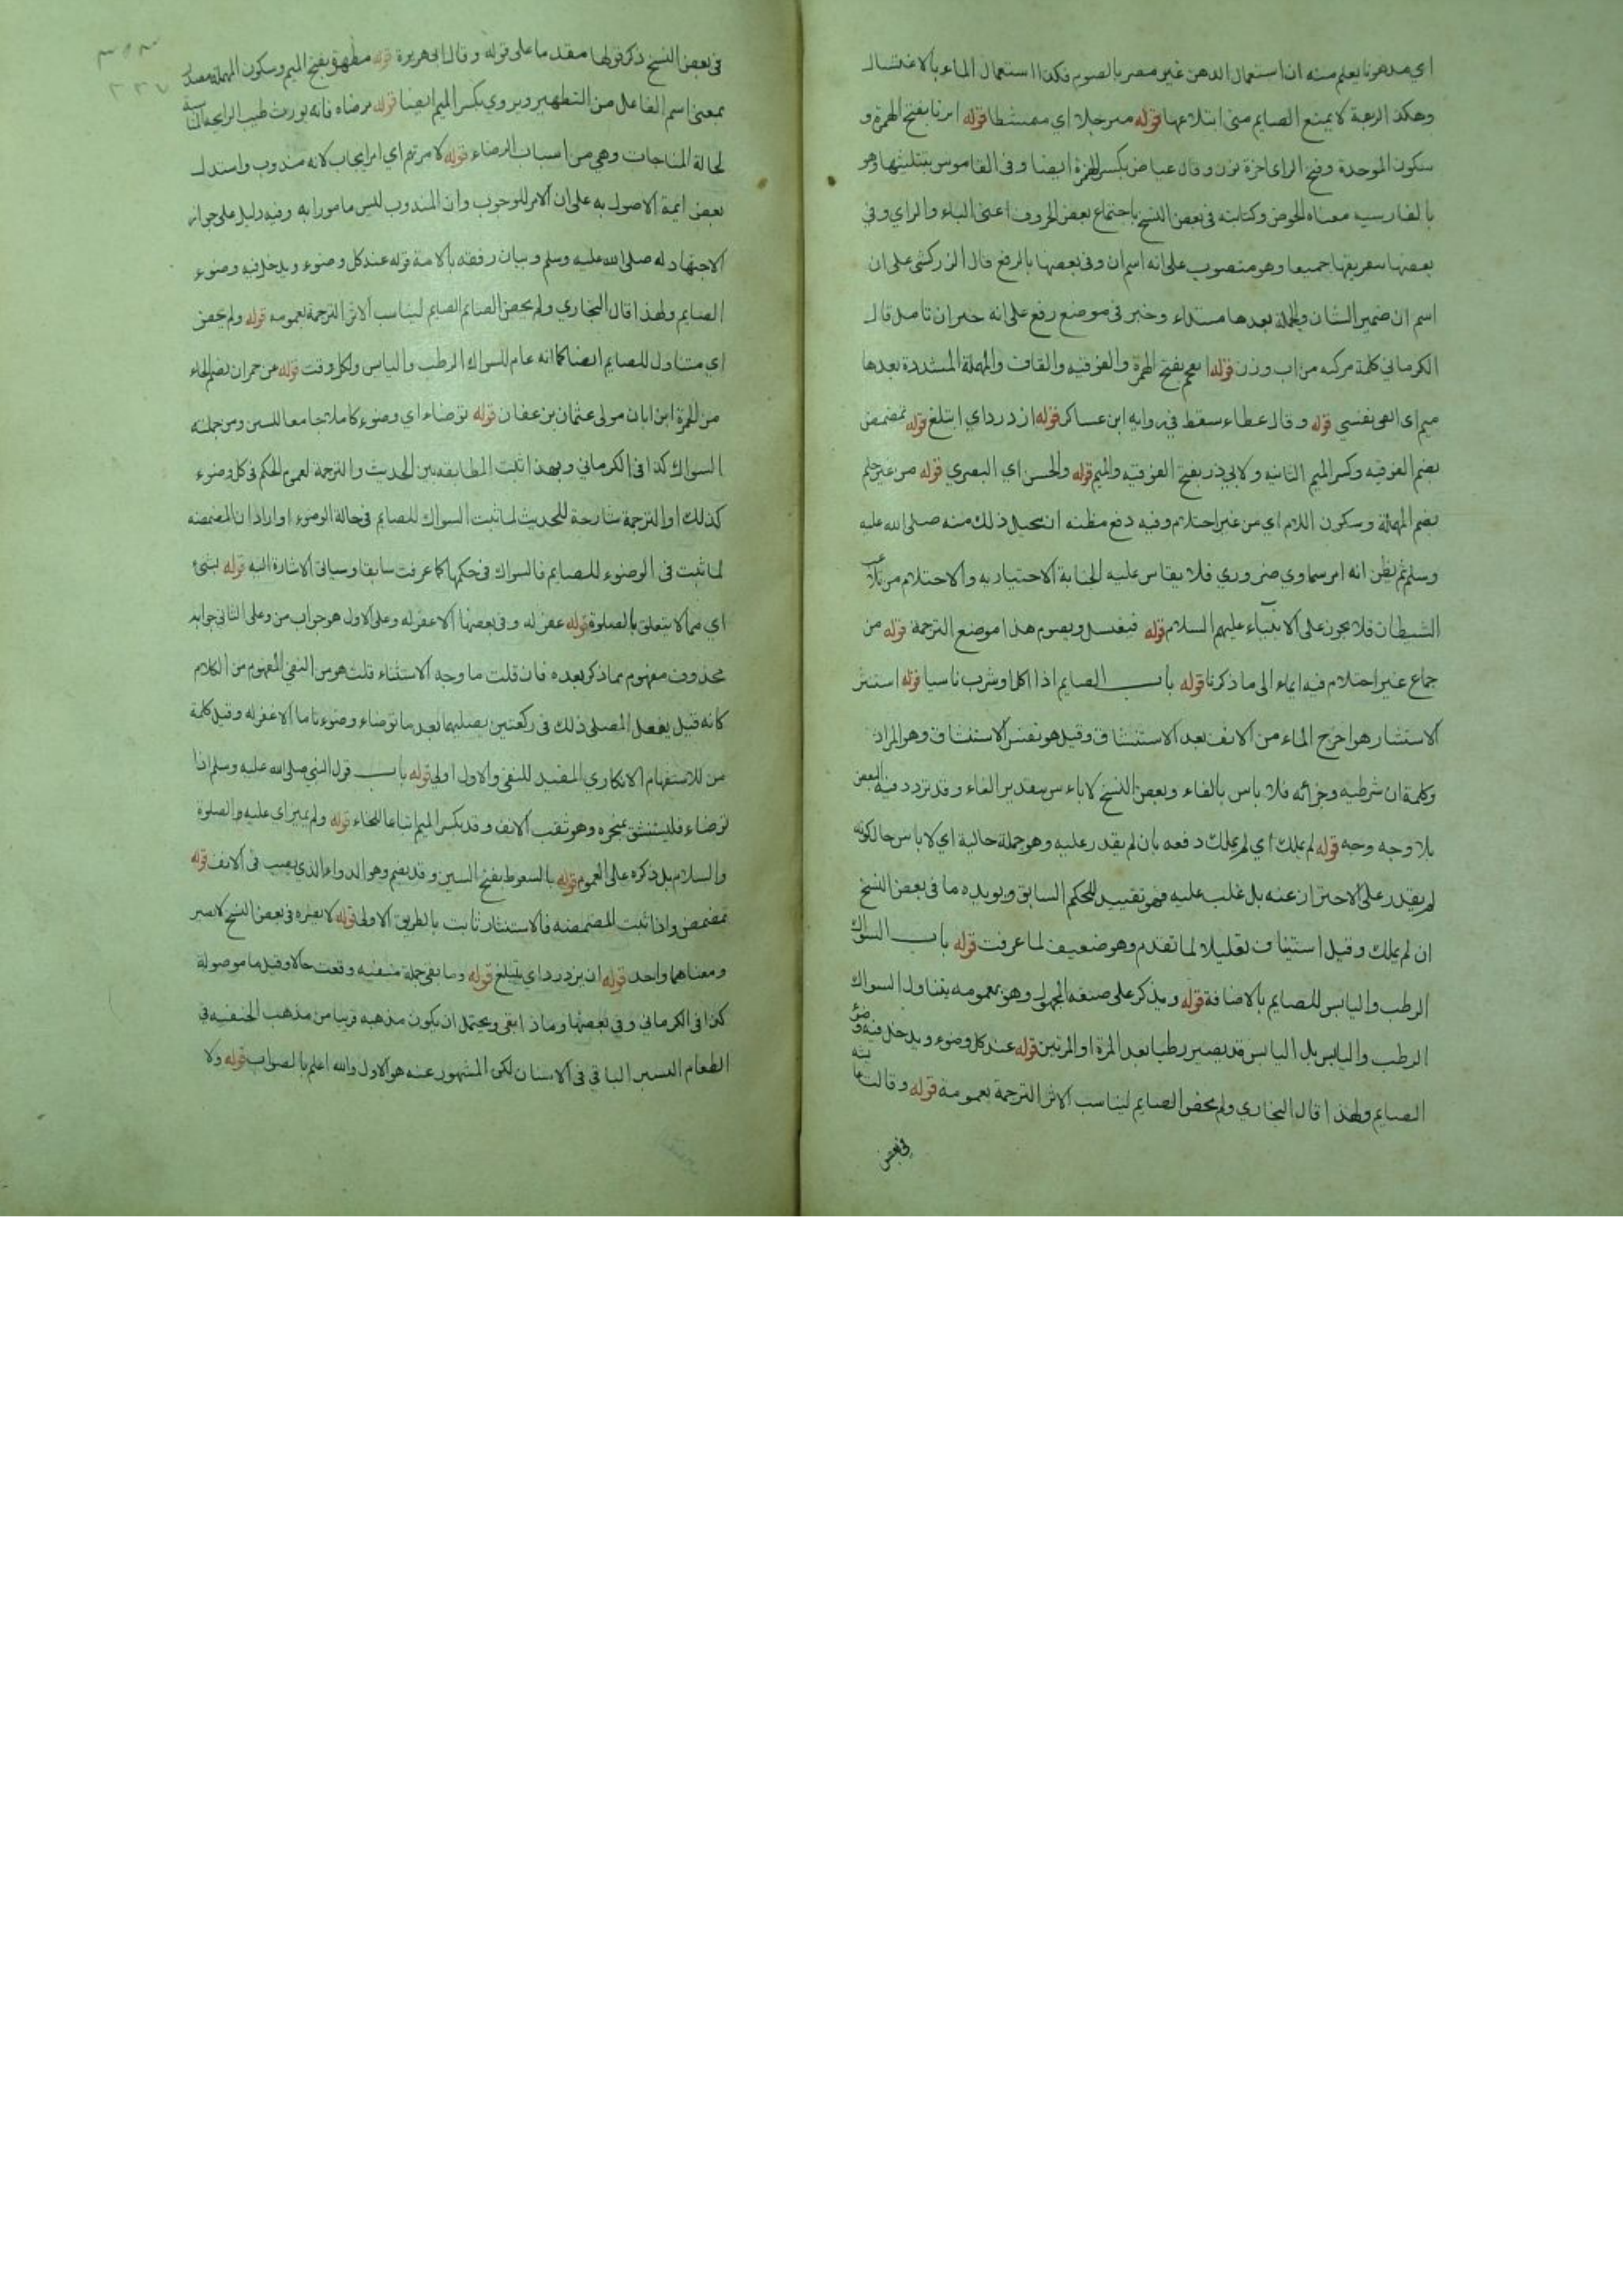 اي مدهونا يعلم منه ان استعمال الدهن غير مضر بالصوم فكذا استعمال الماء بالاغتسال
وهكذا الرغبة لا يمنع الصايم متى ابتلاعها قوله مترجلا اي ممتشطا قوله ابزنا بفتح الهمزة و
سكون الموحدة وفتح الزاي اخره نون وقال عياض بكسر الهمزة ايضا وفى القاموس بتثليثها وهو
بالفارسيه معناه الحوض وكتابته فى بعض النسخ باجتماع بعض الحروف اعنى الباء والزاي وفي
بعضها بتفريقها جميعا وهو منصوب على انه اسم ان وفى بعضها بالرفع قال الزركشى على ان
اسم ان ضمير الشان والجملة بعدها مبتداء وخبر فى موضع رفع على انه خبر ان تامل قال
الكرماني كلمة مركبه من اب وزن قوله اتقحم بفتح الهمزة والفوقيه والقاف والمهملة المشددة بعدها
ميم اى القى نفسي قوله وقال عطاء سقط في روايه ابن عساكر قوله ازدرد اي ابتلع قوله تمضمض
بضم الفوقيه وكسر الميم الثانيه ولابي ذر بفتح الفوقيه والميم قوله والحسن اي البصري قوله من غير حلم
بضم المهملة وسكون اللام اي من غير احتلام وفيه دفع مظنه ان يحيل ذلك منه صلى الله عليه
وسلم ثم يظن انه امر سماوي ضروري فلا يقاس عليه الجنابة الاختياريه والاحتلام من تلاعب
الشيطان فلا يجوز على الانبياء عليهم السلام قوله فيغتسل ويصوم هذا موضع الترجمة قوله من
جماع غير احتلام فيه ايماء الى ما ذكرنا قوله باب الصايم اذا اكل او شرب ناسيا قوله استنثر
الاستنثار هو اخرج الماء من الانف بعد الاستنشاق وقيل هو نفس الاستنشاق وهو المراد
وكلمة ان شرطيه وجزائه فلا باس بالفاء وبعض النسخ لا باس بتقدير الفاء وقد تردد فيه البعض
بلا وجه وجه قوله لم يملك اي لم يملك دفعه بان لم يقدر عليه وهو جملة حالية اي لا باس حالكونه
لم يقدر على الاحتراز عنه بل غلب عليه فهو تقييد للحكم السابق ويويده ما فى بعض النسخ
ان لم يملك وقيل استيناف تعليلا لما تقدم وهو ضعيف لما عرفت قوله باب السواك
الرطب واليابس للصايم بالاضافة قوله ويذكر على صيغه المجهول وهو بعمومه يتناول السواك
الرطب واليابس بل اليابس قد يصير رطبا بعد المرة او المرتين قوله عند كل وضوء ويدخل فيه وضوء
الصايم ولهذا قال البخاري ولم يخص الصايم ليناسب الاثر الترجمة بعمومه قوله وقالت عايشه
فى بعض
فى بعض النسخ ذكر قولها مقدما على قوله وقال ابى هريرة قوله مطهرة بفتح الميم وسكون المهملة مصدر
بمعنى اسم الفاعل من التطهير ويروي بكسر الميم ايضا قوله مرضاه فانه يورث طيب الرايحه المناسبة
لحالة المناجات وهي من اسباب الرضاء قوله لامرتهم اي امر ايجاب لانه مندوب واستدل
بعض ائمة الاصول به على ان الامر للوجوب وان المندوب ليس مامورا به وفيه دليل على جواز
الاجتهاد له صلى الله عليه وسلم وبيان رفقه بالامة قوله عند كل وضوء ويدخل فيه وضوء
الصايم ولهذا قال البخاري ولم يخص الصائم الصايم ليناسب الاثر الترجمة بعمومه قوله ولم يخص
اي متناول للصايم ايضا كما انه عام للسواك الرطب واليابس ولكل وقت قوله عن حمران بضم الحاء
من الحمرة ابن ابان مولى عثمان بن عفان قوله توضاء اي وضوء كاملا جامعا للسنن ومن جملته
السواك كذا فى الكرماني وبهذا تثبت المطابقه بين الحديث والترجمة لعموم الحكم فى كل وضوء
كذلك او الترجمة شارحة للحديث لما ثبت السواك للصايم فى حالة الوضوء او اراد ان المضمضه
لما ثبت فى الوضوء للصايم فالسواك فى حكمها كما عرفت سابقا وسياتى الاشارة اليه قوله بشئ
اي مما لا يتعلق بالصلوة قوله غفر له وفى بعضها الا غفر له وعلى الاول هو جواب من وعلى الثانى جوابه
محذوف مفهوم مما ذكر بعده فان قلت ما وجه الاستثناء قلت هو من النفى المفهوم من الكلام
كانه قيل يفعل المصلى ذلك فى ركعتين يصليهما بعد ما توضاء وضوء تاما الا غفر له وقيل كلمة
من للاستفهام الانكاري المفيد للنفى والاول اولى قوله باب قول النبي صلى الله عليه وسلم اذا
توضاء فليستنشق بمنخره وهو ثقب الانف وقد بكسر الميم اتباعا للخاء قوله ولم يميز اي عليه والصلوة
والسلام بل ذكره على العموم قوله بالسعوط بفتح السين وقد بضم وهو الدواء الذي يصب فى الانف قوله
تمضمض واذا ثبت المضمضه فالاستنثار ثابت بالطريق الاولى قوله لا يضره فى بعض النسخ لا يضير
ومعناهما واحد قوله ان يزدرد اي يبتلع قوله وما بقى جملة منفيه وقعت حالا وقيل ما موصولة
كذا فى الكرماني وفي بعضها وماذا ابقى ويحتمل ان يكون مذهبه قريبا من مذهب الحنفيه في
الطعام اليسير الباقي فى الاسنان لكن المشهور عنه هو الاول والله اعلم بالصواب قوله ولا